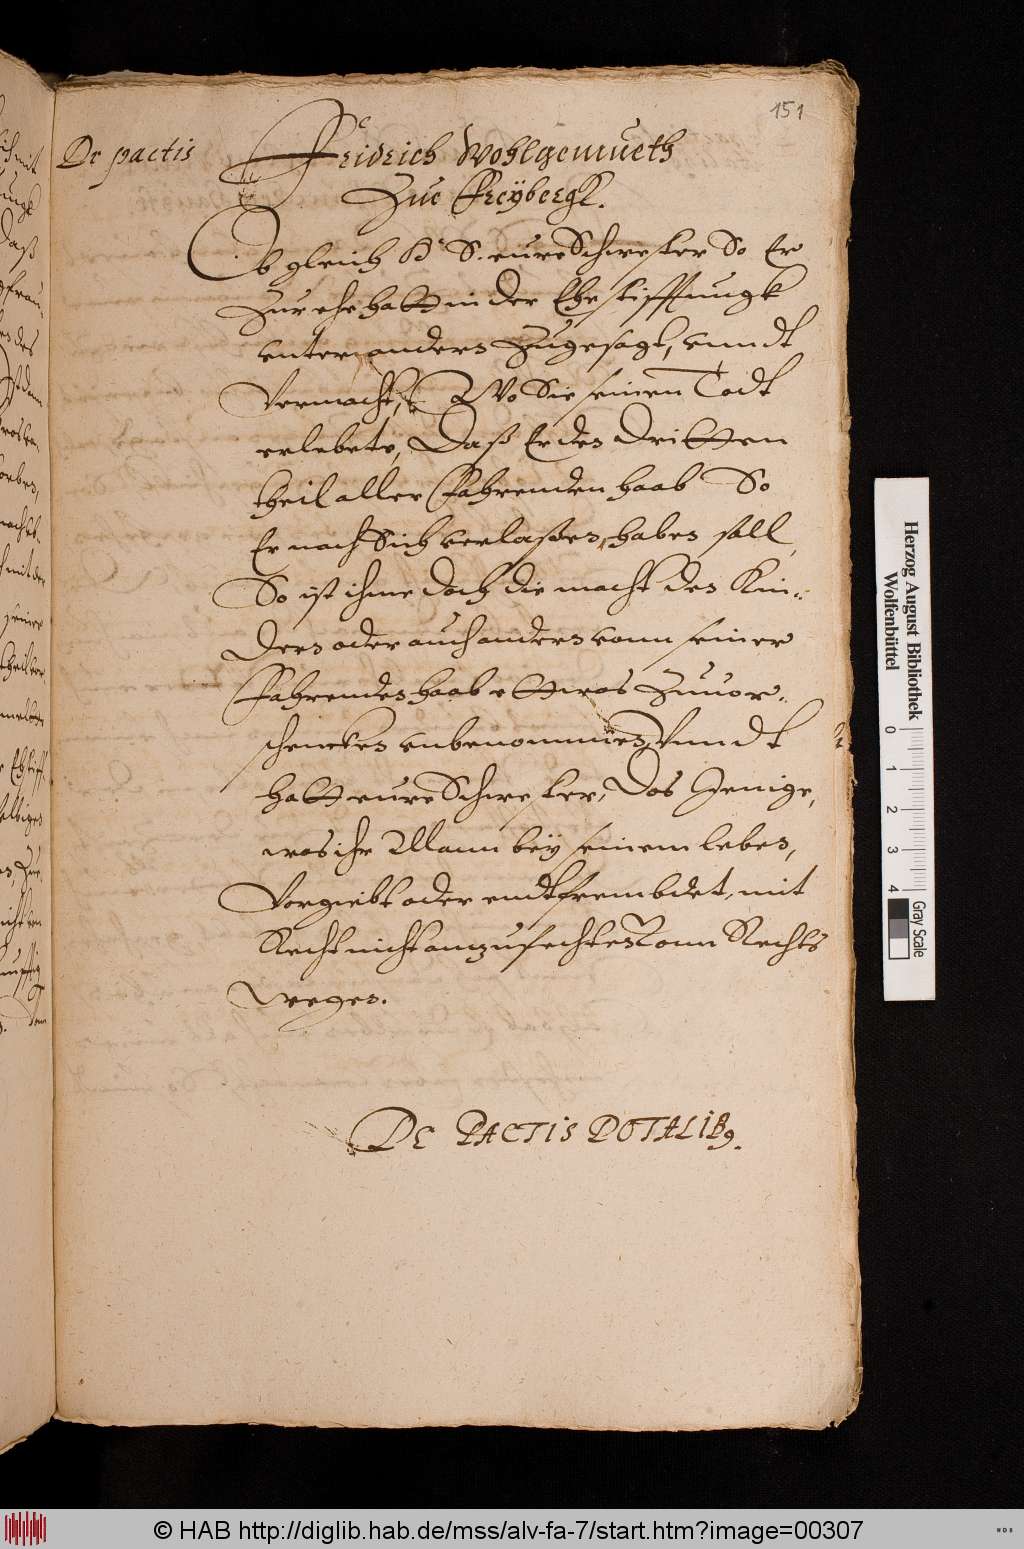 151
De pactis
Fridrich Wohlgemueth
Zue Freyberglk.
Ob gleich H. S. eure Schwester So Er
Zur ehe hatt in der Ehestifftungk
unter anders Zugesagt, unndt
Vermacht, Wo Sie seinen Todt
erlebete, Daß Er des Dritten
theil aller Fahrenden haab So
Er nach Sich verlaßen, haben soll,
So ist ihme doch die macht den Kin-
dern oder auch anders vonn seiner
Fahrenden haab ettwas Zuuor-
schencken unbenommen, Vnndt
hatt eure Schwester, Das Jenige,
was ihr Mann bey seinem leben,
Vorgiebt oder endtfrembdet, mit
Recht nicht anzufechten Vonn Rechts
wegen.
DE PACTIS DOTALIB9.
Herzog August Bibliothek
Wolfenbüttel
0 1 2 3 4
Gray Scale
© HAB http://diglib.hab.de/mss/alv-fa-7/start.htm?image=00307